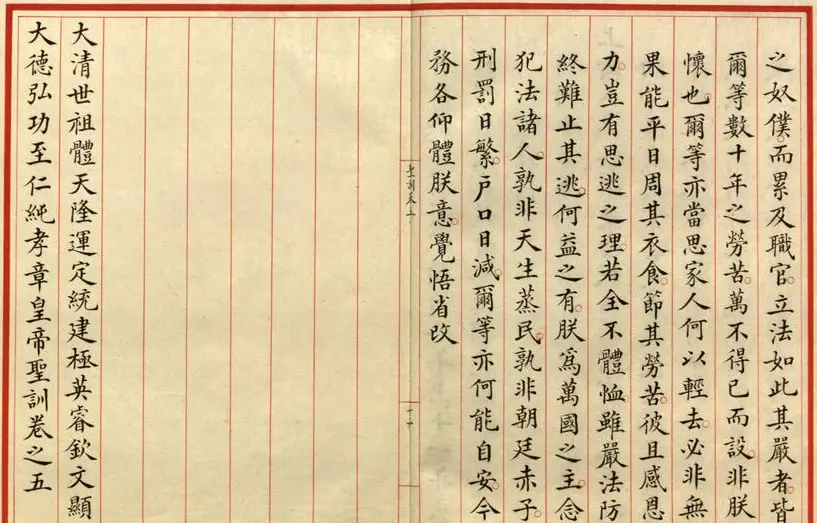 之奴僕而累及職官立法如此其嚴者皆
爾等數十年之勞苦萬不得已而設非朕
懷也爾等亦當思家人何以輕去必非無
果能平日周其衣食節其勞苦彼且感恩
力豈有思逃之理若全不體恤雖嚴法防
終難止其逃何益之有朕為萬國之主念
犯法諸人孰非天生蒸民孰非朝廷赤子
刑罰日繁戶口日減爾等亦何能自安今
務各仰體朕意覺悟省改
大清世祖體天隆運定統建極英睿欽文顯
大德弘功至仁純孝章皇帝聖訓卷之五